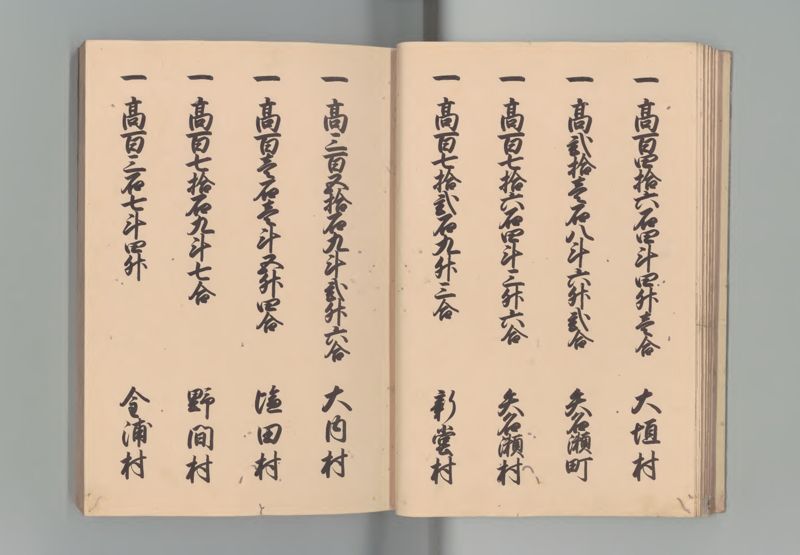 一 高百四拾六石四斗四升壱合 大垣村
一 高弐拾壱石八斗六升弐合 矢名瀬町
一 高百七拾六石四斗三升六合 矢名瀬村
一 高百七拾弐石九升三合 新堂村
一 高三百五拾石九斗弐升六合 大内村
一 高百壱石壱斗五升四合 塩田村
一 高百七拾石九斗七合 野間村
一 高百三石七斗四升 金浦村